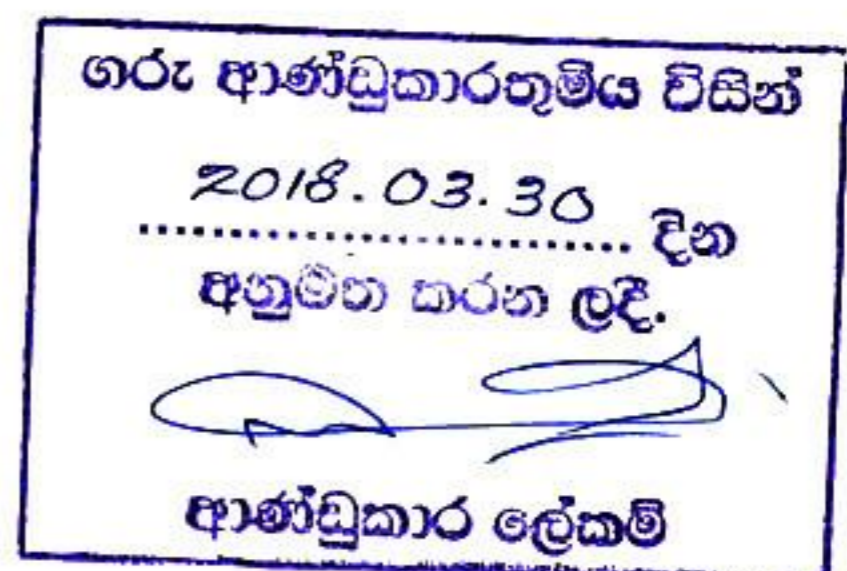 ගරු ආණ්ඩුකාරතුමිය විසින්
2018.03.30
.................................... දින
අනුමත කරන ලදී.
ආණ්ඩුකාර ලේකම්